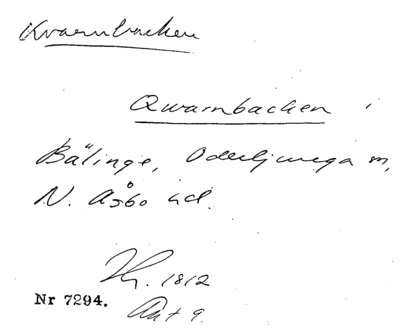 Kvarnbacken
Qwarnbacken i
Bälinge, Oderljunga sn,
N. Åsbo hd.
1812
Nr 7294.
Akt 9.